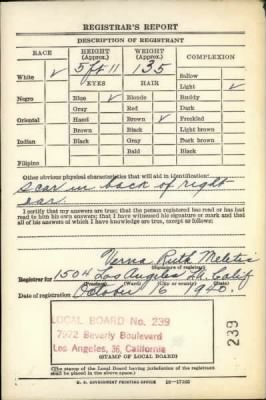 REGISTRAR'S REPORT
DESCRIPTION OF REGISTRANT
RACE HEIGHT (Approx.) WEIGHT (Approx.) COMPLEXION
5 ft 11 135 Sallow
White ✓ EYES HAIR Light ✓
Negro Blue ✓ Blonde Ruddy
Gray Red Dark
Oriental Hazel Brown ✓ Freckled
Brown Black Light brown
Indian Black Gray Dark brown
Bald Black
Filipino
Other obvious physical characteristics that will aid in identification
Scar in back of right
ear.
I certify that my answers are true; that the person registered has read or has had
read to him his own answers; that I have witnessed his signature or mark and that
all of his answers of which I have knowledge are true, except as follows:
Verna Ruth
(Signature of registrar)
Registrar for 1504 Los Angeles Calif
(Precinct) (Ward) (City or county) (State)
Date of registration October 16 1940
LOCAL BOARD No. 239
7972 Beverly Boulevard
Los Angeles, 36, California
(STAMP OF LOCAL BOARD)
239
(The stamp of the Local Board having jurisdiction of the registrant
shall be placed in the above space.)
U. S. GOVERNMENT PRINTING OFFICE 16—17105